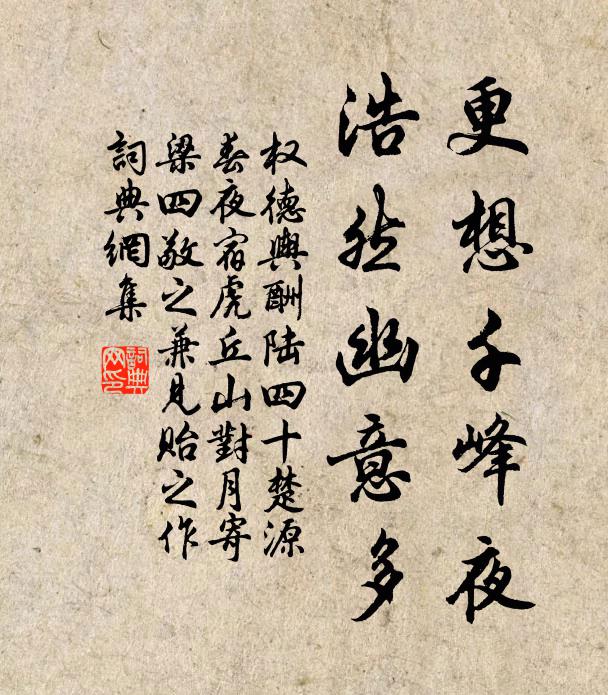 更想千峰夜
浩然幽意多
权德輿酬陆四十楚源
春夜宿虎丘山對月寄
梁四敬之兼見貽之作
詞典網集
詞典
网印